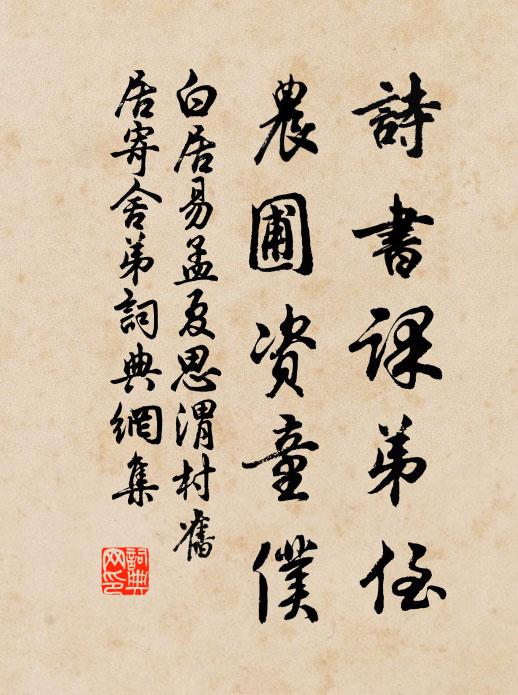 詩書課弟侄
農圃資童僕
白居易孟夏思渭村舊
居寄舍弟詞典網集
詞典网印